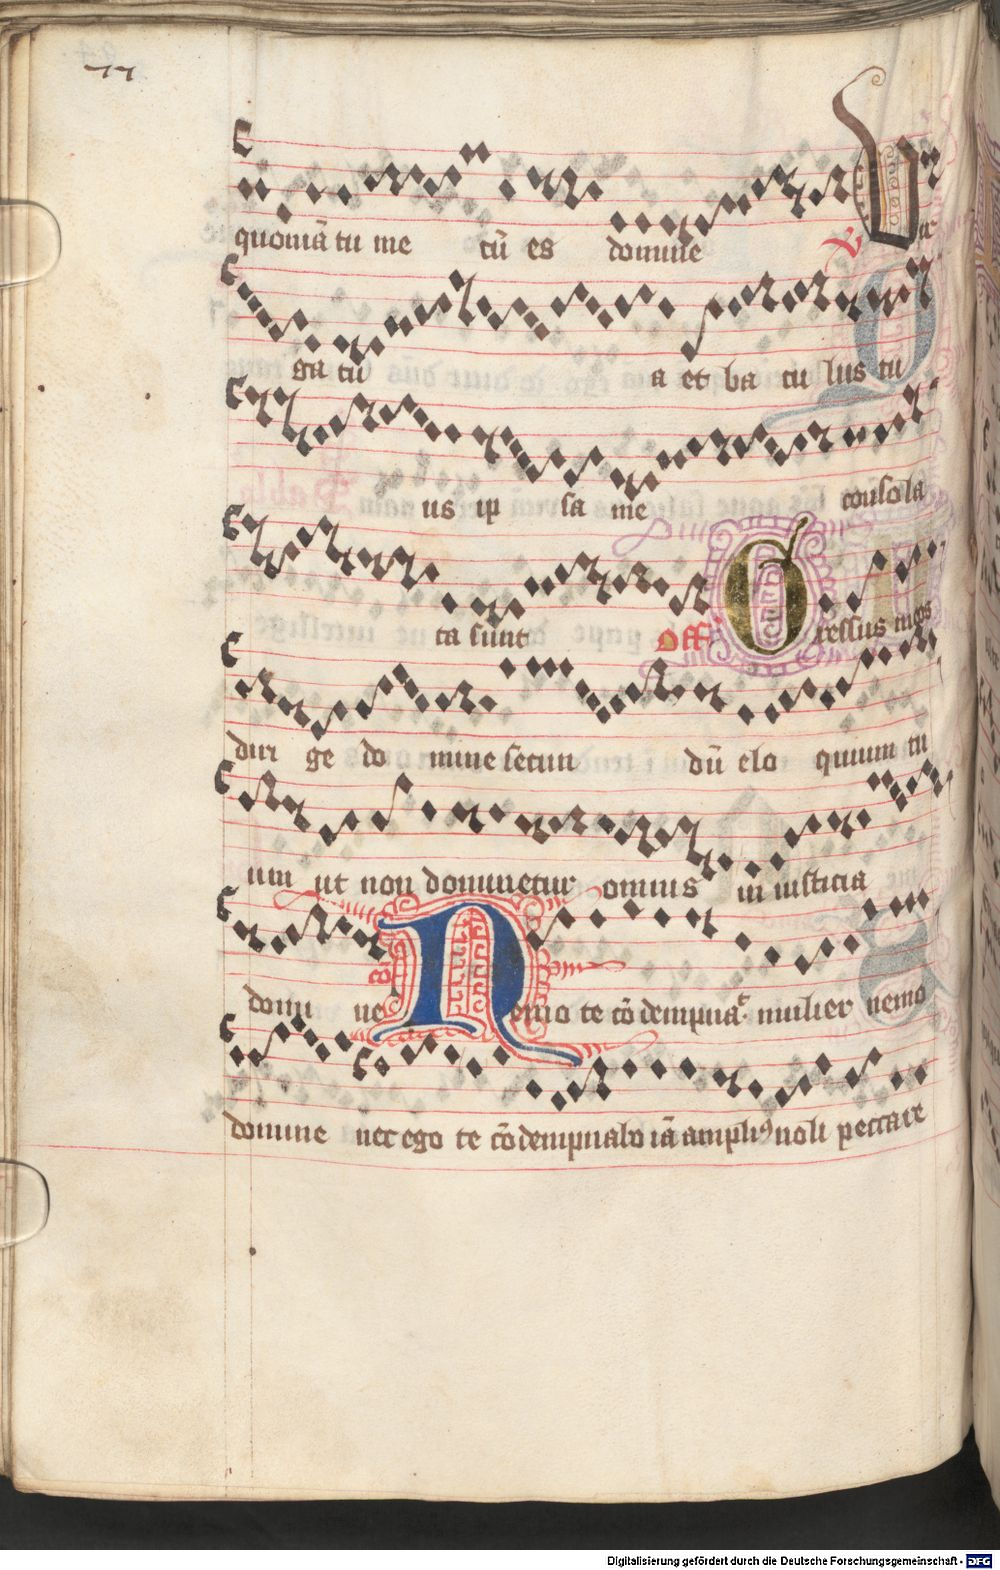 77
quoniā tu me cū es domine ℣ Vir
ga tu a et ba cu lus tu
us ip sa me consola
ta sunt off Gressus meos
diri ge do mine secun dū elo quium tu
um ut non dominetur omnis in iusticia
domi ne cō Nemo te cōdempnaᵗ mulier nemo
domine nec ego te cōdempnabo iā ampliꝰ noli peccare
Digitalisierung gefördert durch die Deutsche Forschungsgemeinschaft - DFG